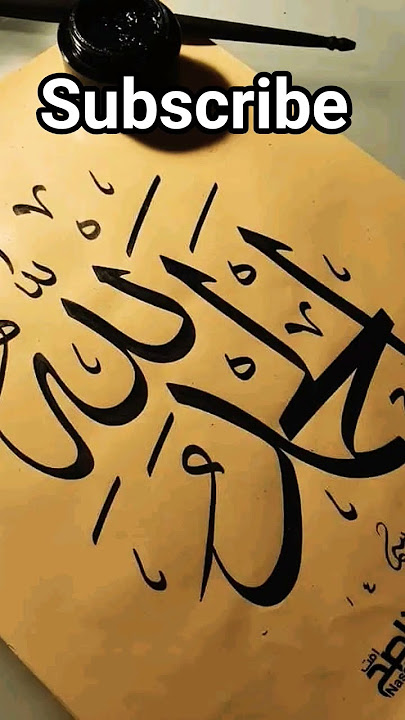 Subscribe
الحمد لله